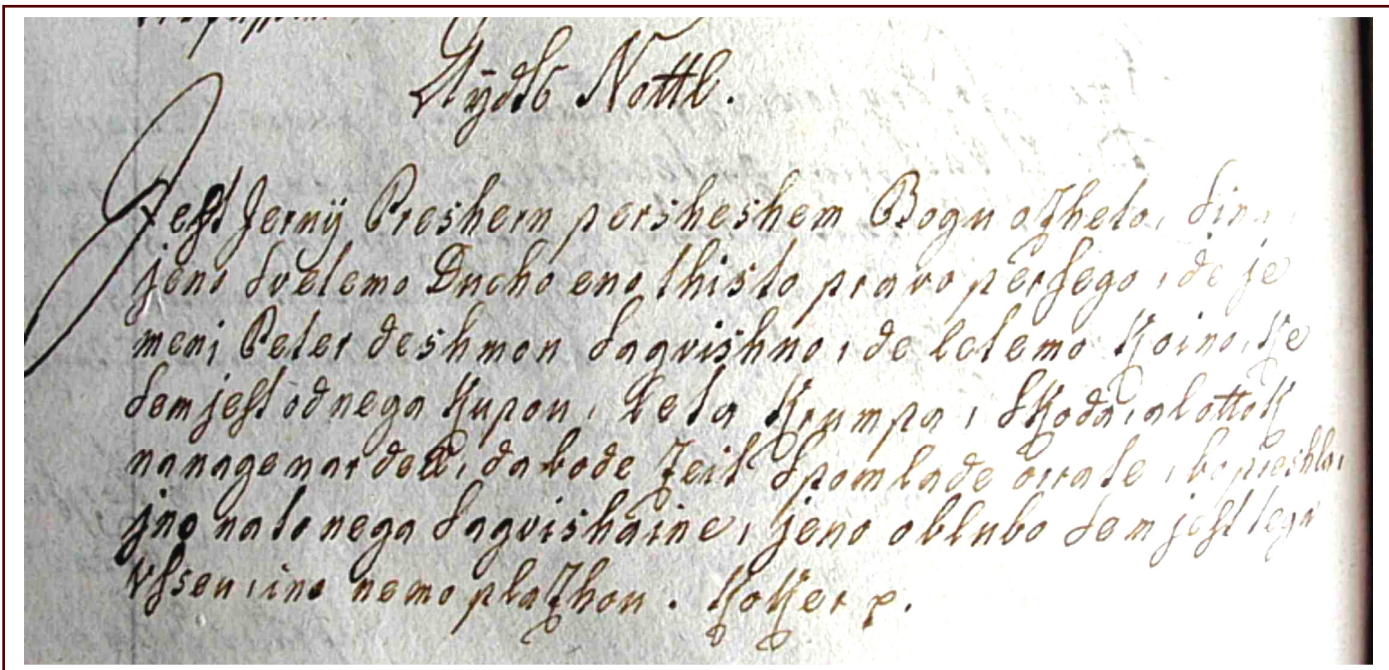 Aÿdts Nottl.
Jeſt Jernÿ Preshern persheshem Bogu ozheto, sinu,
jeno svetemo Ducho eno thisto pravo perſego, de je
meni Peter deshmon sagvishno, de letemo Koino, ke
sem jeſt od nega Kupou, leta Krumpa, skoda, al ottok
na nage nardeu, da bode zeit spomlade orrate, bo preshla,
jno nato nega sagvishaine, jeno oblubo sem jeſt tega
vſseu, ino nemo plazhou. Koker p.